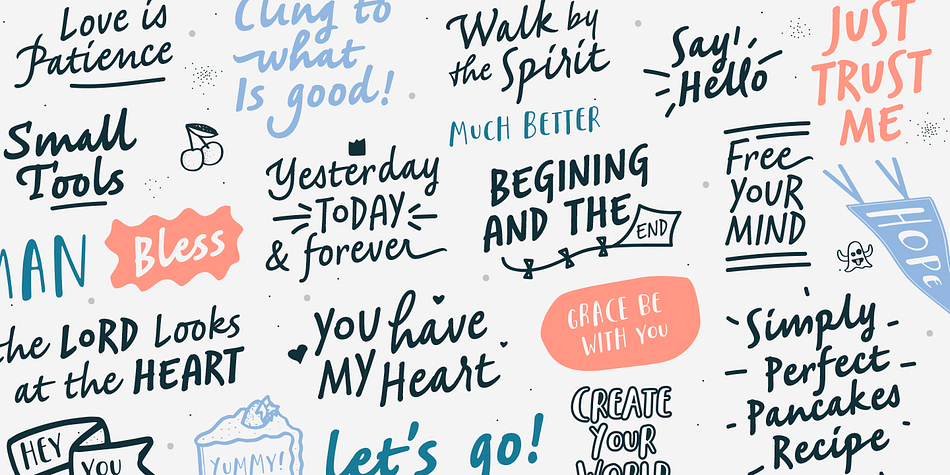 Love is
Patience
Cling to
what
Is good!
Walk by
the Spirit
Say
Hello
JUST
TRUST
ME
Small
Tools
MUCH BETTER
Yesterday
TODAY
& forever
BEGINING
AND THE
END
Free
YOUR
MIND
HOPE
MAN
Bless
the LORD Looks
at the HEART
you have
MY Heart
GRACE BE
WITH YOU
Simply
Perfect
Pancakes
Recipe
HEY
YOU
YUMMY!
let's go!
CREATE
YOUR
WORLD